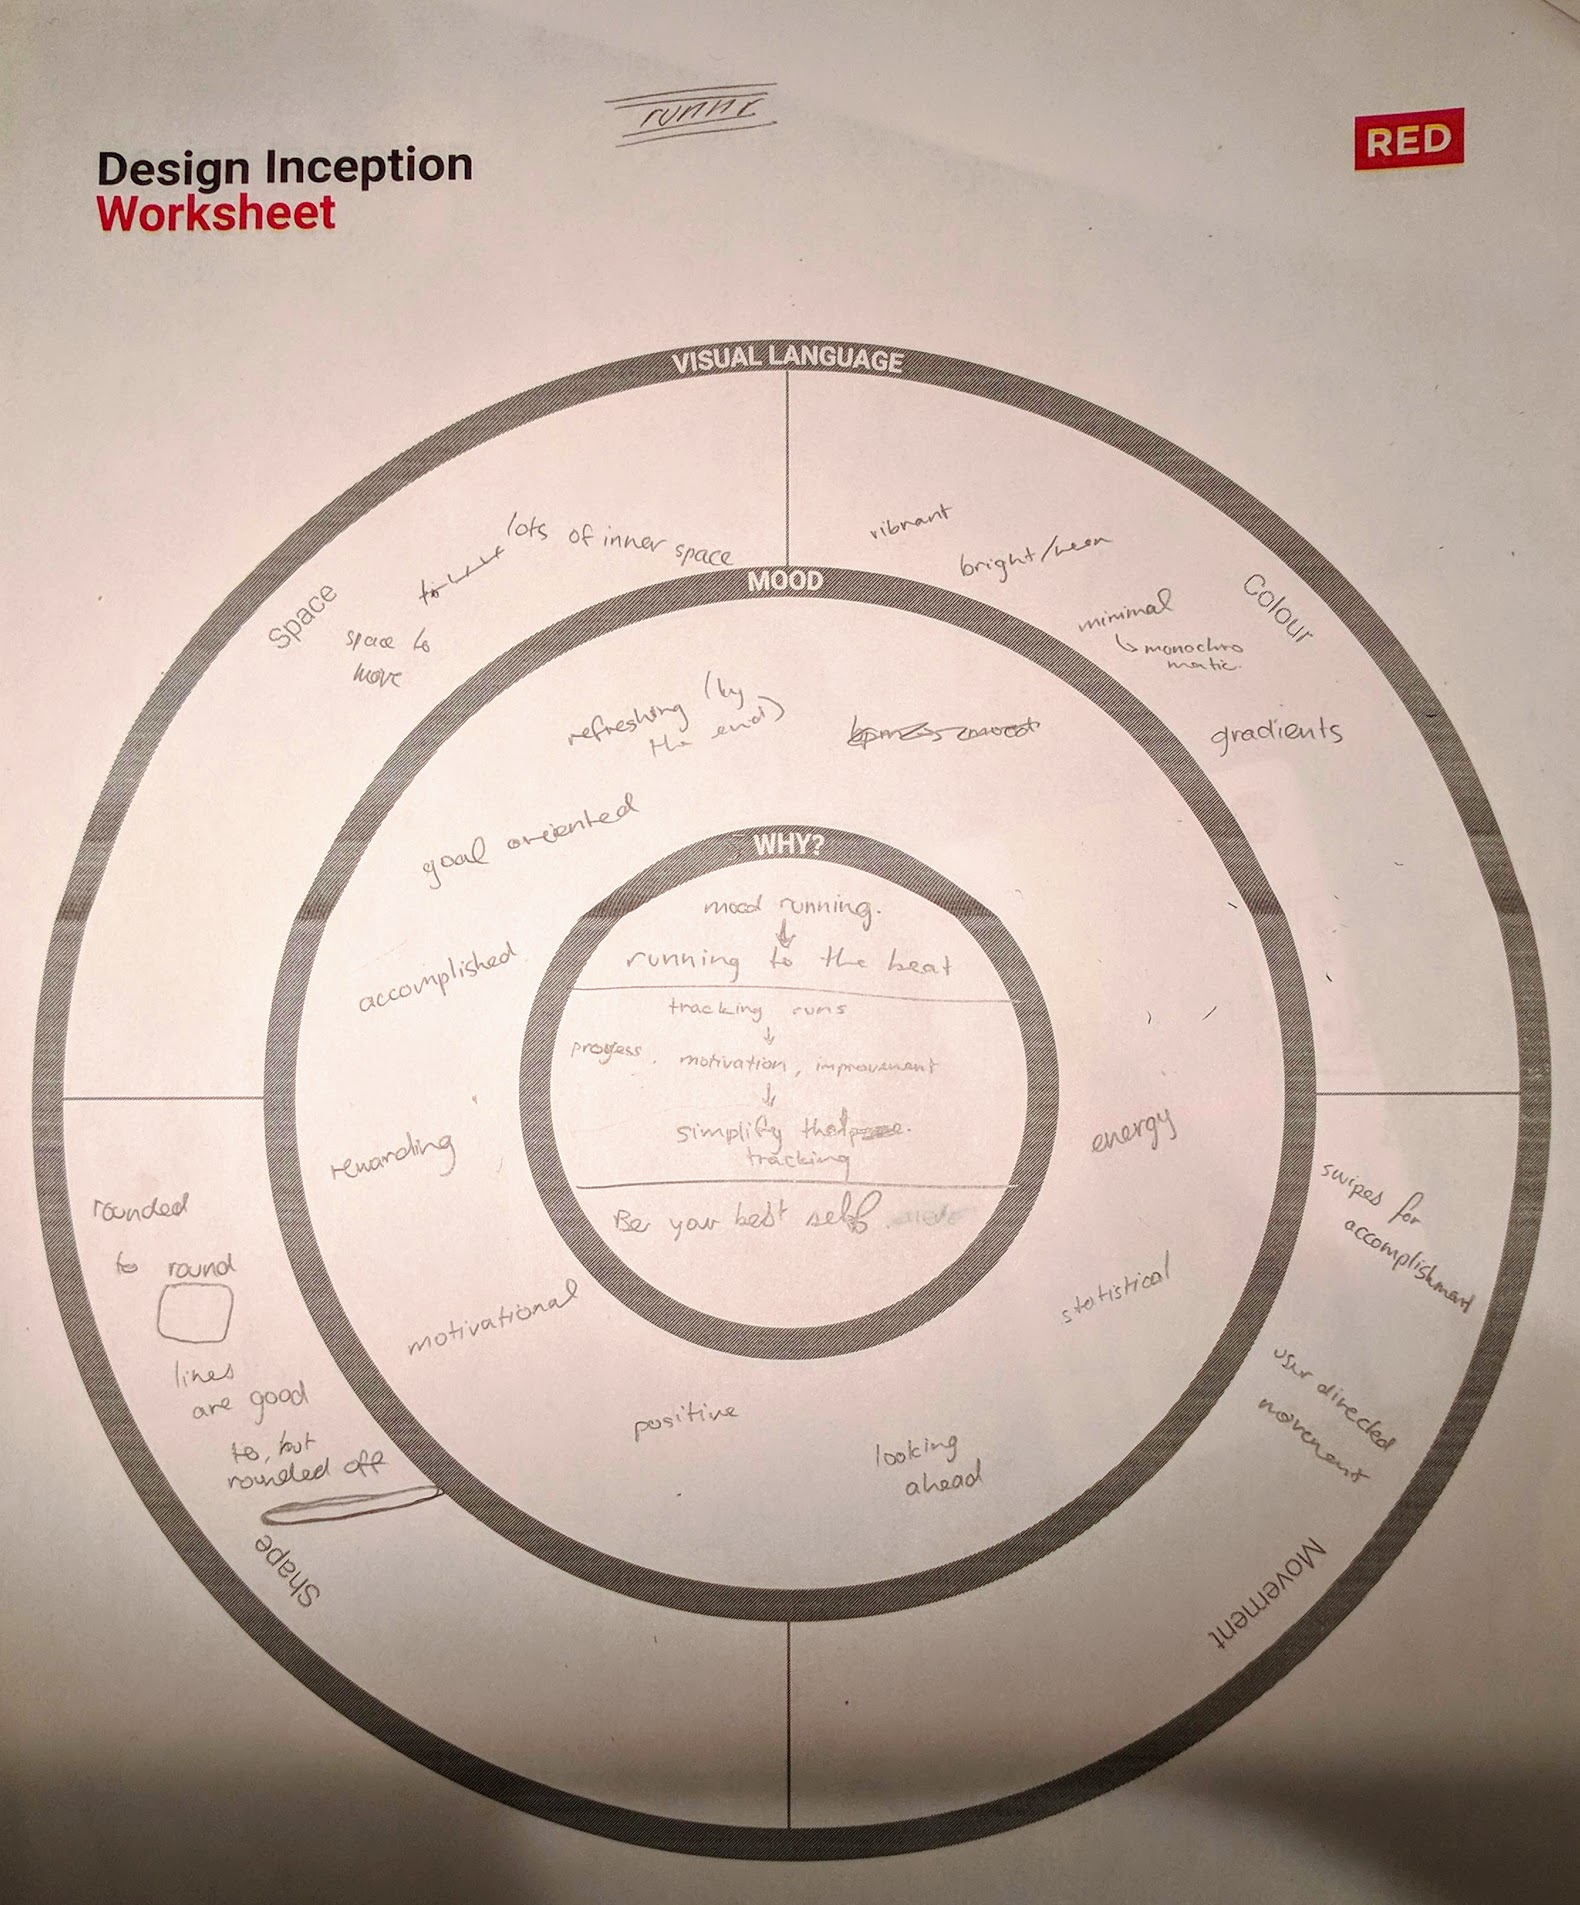 runnr
RED
Design Inception
Worksheet
VISUAL LANGUAGE
Space
lots of inner space
space to
move
Colour
vibrant
bright/neon
minimal
↳ monochro
matic.
gradients
MOOD
refreshing (by
the end)
goal oriented
accomplished
rewarding
motivational
positive
looking
ahead
statistical
energy
WHY?
mood running.
↓
running to the beat
tracking runs
↓
progress, motivation, improvement
↓
simplify that
tracking
Be your best self
Shape
rounded
to round
lines
are good
to, but
rounded off
Movement
swipes for
accomplishment
user directed
movement